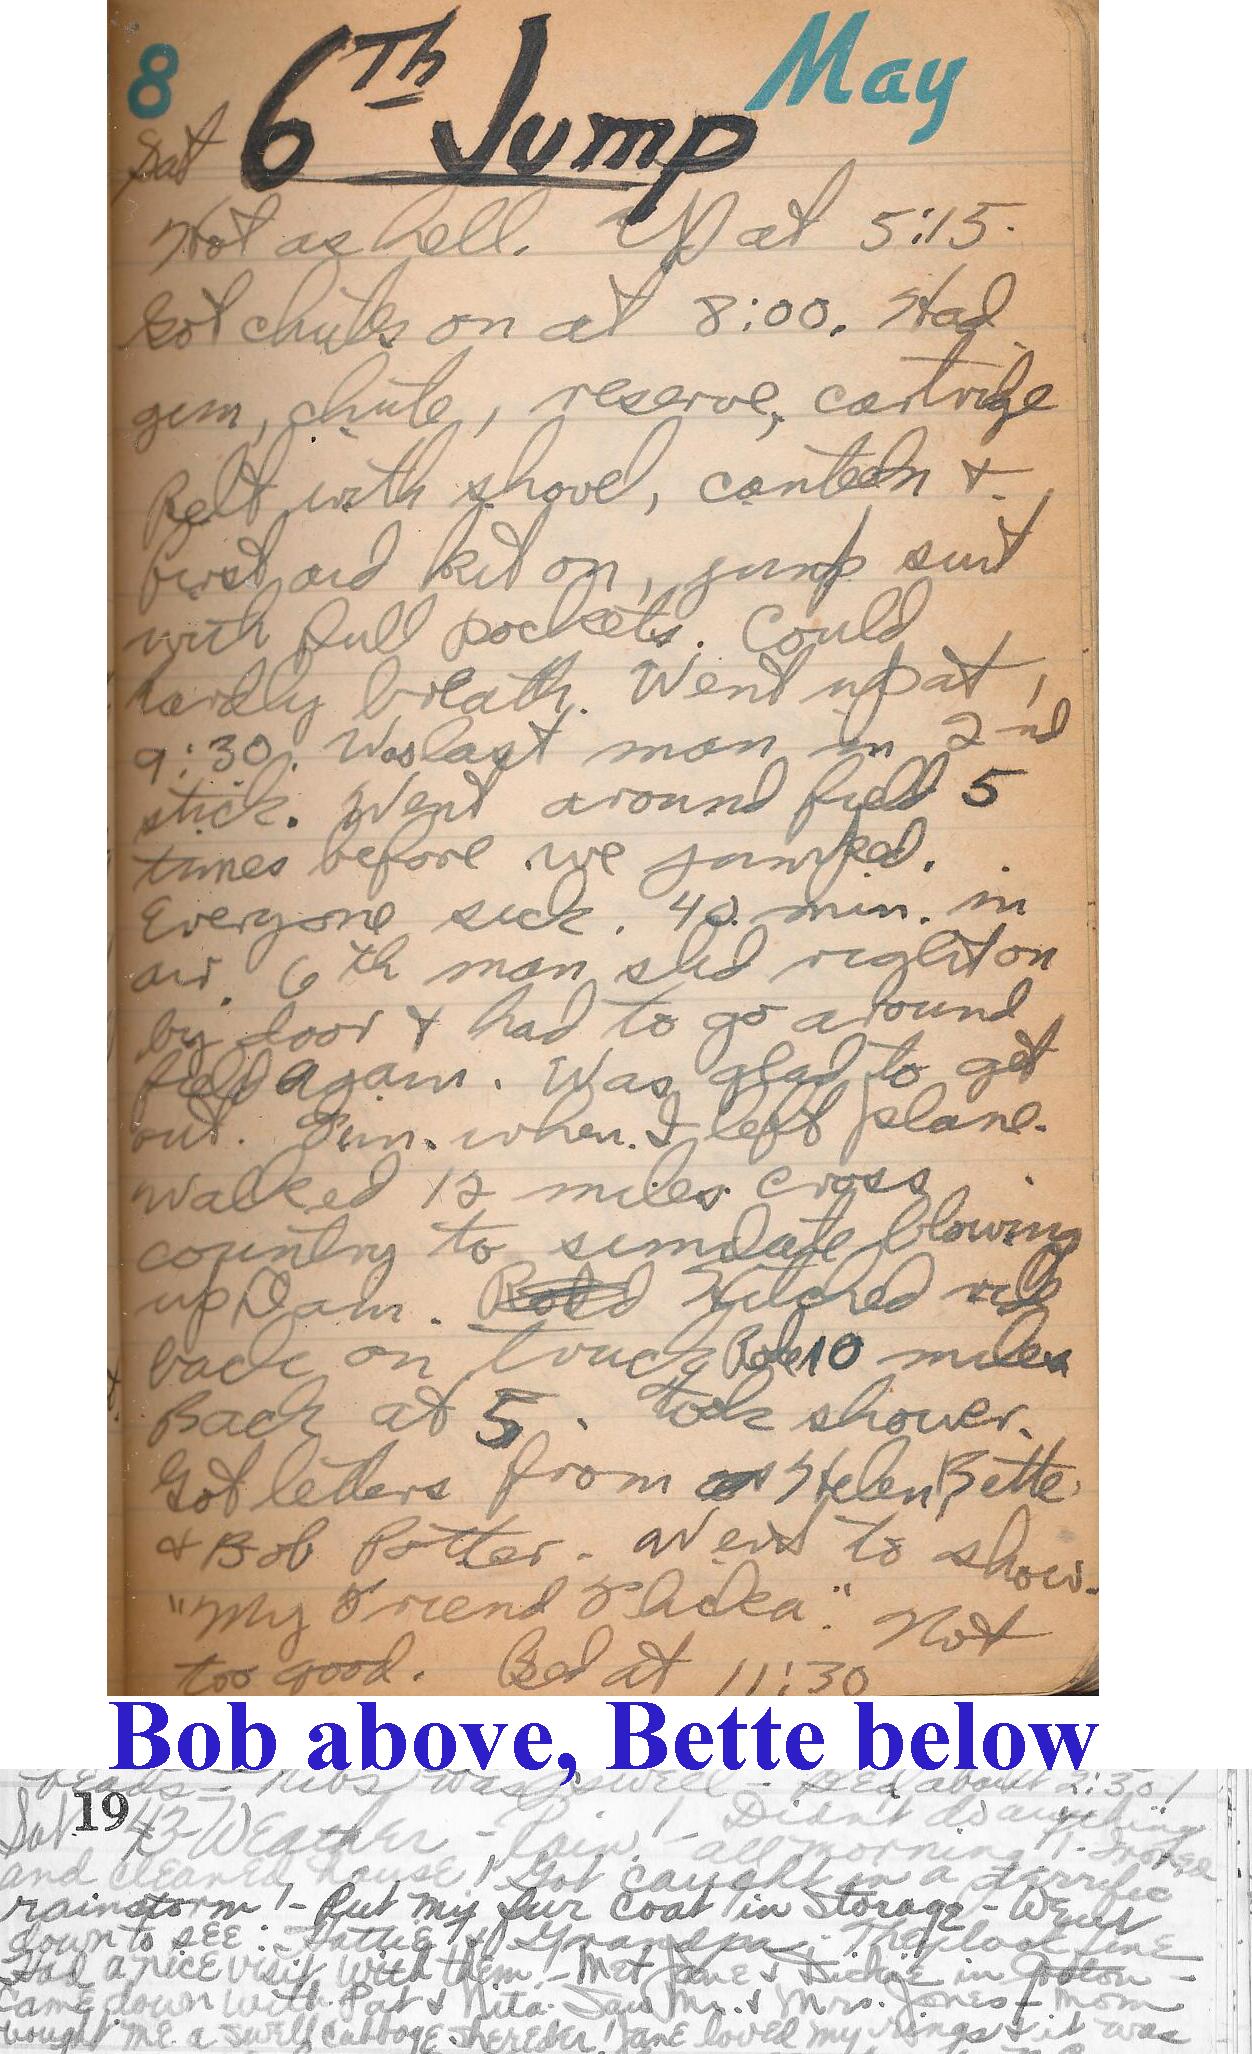 8 6Th Jump May
Sat
Hot as hell. Up at 5:15.
Got chutes on at 8:00. Had
gun, chute, reserve, cartridge
Belt with shovel, canteen &
first aid kit on, jump suit
with full pockets. Could
hardly breath. Went up at
9:30. Was last man in 2nd
stick. Went around field 5
times before we jumped.
Everyone sick. 40 min. in
air. 6th man slid right on
by door & had to go around
field again. Was glad to get
out. when I left plane.
Walked 12 miles cross
country to simulate blowing
up Dam. Hitched ride
back on truck Rode 10 miles
Back at 5. Took shower.
Got letters from Helen, Bette
& Bob Potter. Went to show.
"My Friend Flicka". Not
too good. Bed at 11:30
Bob above, Bette below
was swell - Bed about 2:30!
Sat. 1943 - Weather - Rain! - all morning! Didn't do anything
and cleaned house! Got caught in a terrific
rainstorm! - Put my fur coat in storage - Went
down to see Hattie & Grandpa. They look fine
Had a nice visit with them! - Met Jane & Dickie in
Came down with Pat & Nita. Saw Mr. & Mrs. Jones - Mom
bought me a swell cabbage shredder! Jane loved my rings & it was